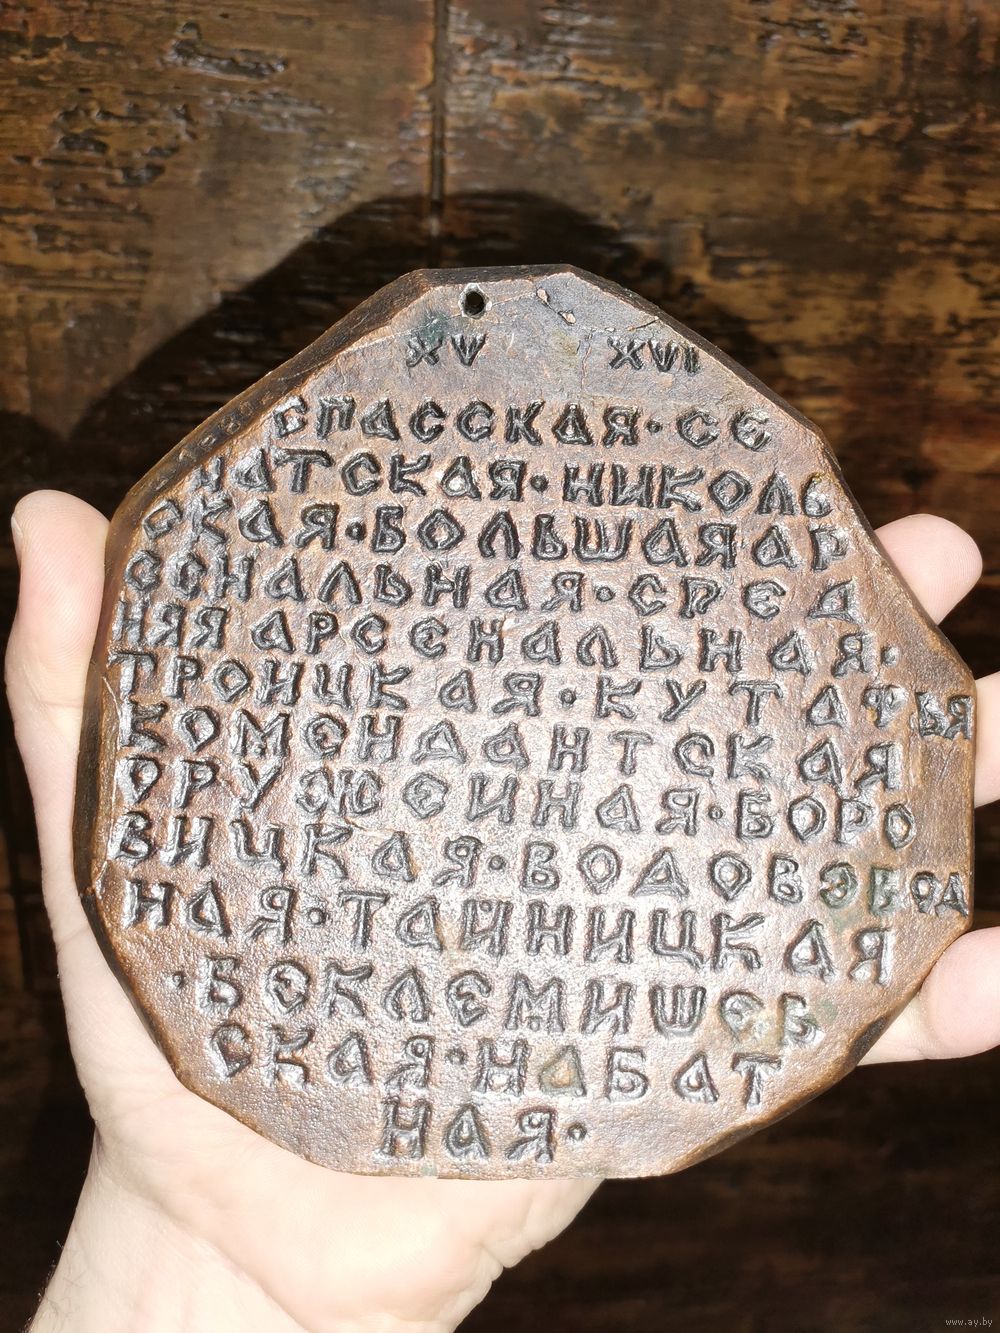 XV XVI
СПАССКАЯ · СЕ
НАТСКАЯ · НИКОЛЬ
СКАЯ · БОЛЬШАЯ АР
СЕНАЛЬНАЯ · СРЕД
НЯЯ АРСЕНАЛЬНАЯ ·
ТРОИЦКАЯ · КУТАФЬЯ
КОМЕНДАНТСКАЯ
ОРУЖЕЙНАЯ · БОРО
ВИЦКАЯ · ВОДОВЗВОД
НАЯ · ТАЙНИЦКАЯ
· БЕКЛЕМИШЕВ
СКАЯ · НАБАТ
НАЯ ·
www.ay.by